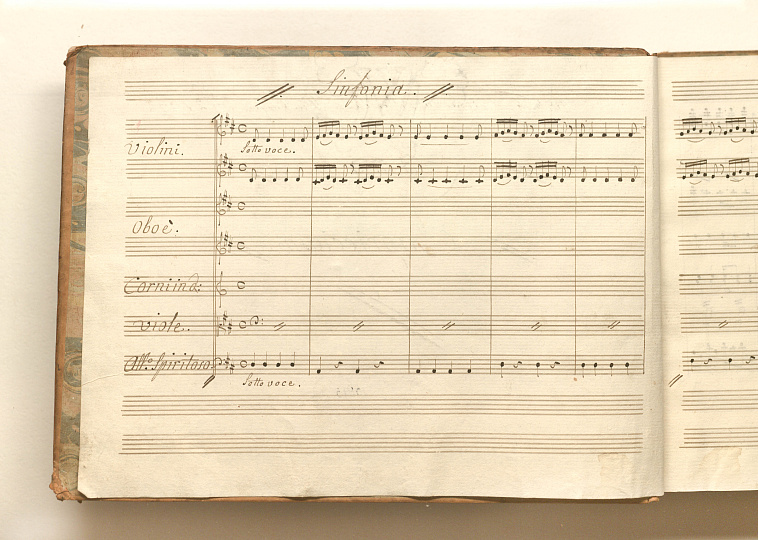 Sinfonia.
Violini.
Sotto voce.
Oboè.
Corni in D:
Viole.
All.º Spiritoso
Sotto voce.